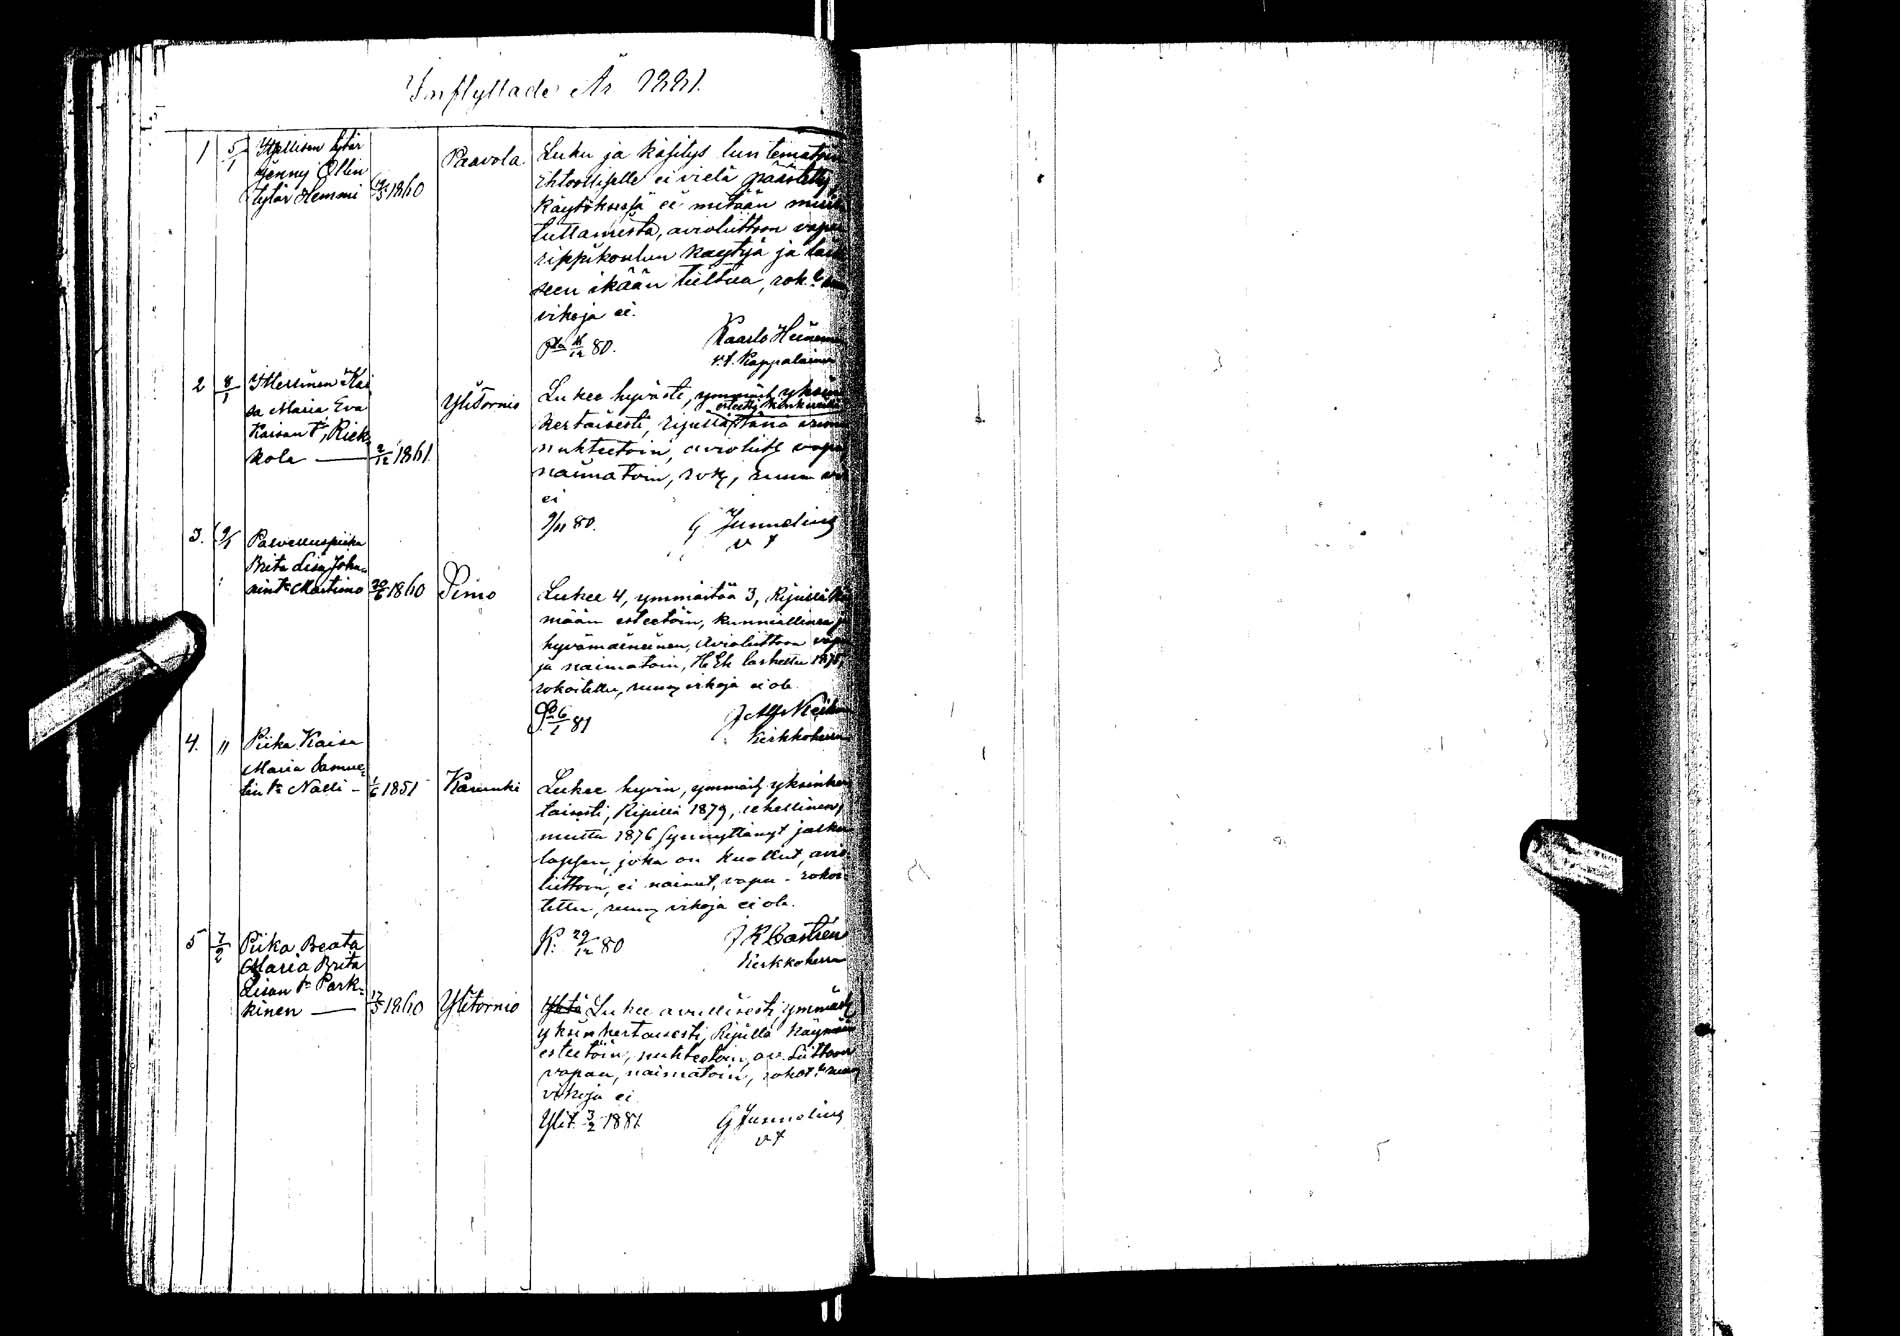 Inflyttade År 1881.
1 5/1 Itsellisen tytär
Jenny Ollin
tytär Hemmi 1860
Paavola
Luku ja käsitys tuntematoin
Ehtoolliselle ei vielä päästetty,
Käytöksessä ei mitään muis-
tuttamista, avioliittoon vapa
rippikoulun käytyä ja
seen ikään tultua, rok.
vikoja ei.
80. Kaarlo Heineman
v.t. Kappalainen
2 8/1 Itsellinen Kai
sa Maria Eva
Kaisan tr, Riek-
kola — 2/12 1861
Ylitornio
Lukee hyvästi, ymmärt. yksin
esteetöin
kertaisesti, ripillä
nuhteetoin, avioliitt. vapa
naimatoin, rok,
ei
9/11 80. G Junnelius
v t
3. 9/1 Palveluspiika
Brita Lisa Joha-
nintr Martimo 20/6 1860 Simo
Lukee 4, ymmärtää 3, Ripillä käy
mään esteetöin, kunniallinen ja
hyvämaineinen, Avioliittoon vapa
ja naimatoin, H. Eh. laskettu 1875,
rokoitettu, ruum. vikoja ei ole.
S. 6/1 81
Kirkkoherra
4. " Piika Kaisa
Maria Samue-
lin tr Nalli - 1/6 1851 Karunki
Lukee hyvin, ymmärt. yksinker
taisesti, Ripillä 1879, rehellinen,
mutta 1876 synnyttänyt jalka
lapsen, joka on kuollut, avio
liittoon, ei nainut, vapa - rokoi
tettu, ruum. vikoja ei ole.
K. 29/12 80 J R Castrén
Kirkkoherra
5 7/2 Piika Beata
Maria Brita
Lisan tr Park-
kinen — 17/5 1860 Ylitornio
Lukee avullisesti, ymmärt.
yksinkertaisesti, Ripillä käymään
esteetöin, nuhteetoin, av. liittoon
vapaa, naimatoin, rokot. ruum
vikoja ei
Ylit. 3/2 1881. G Junnelius
v t